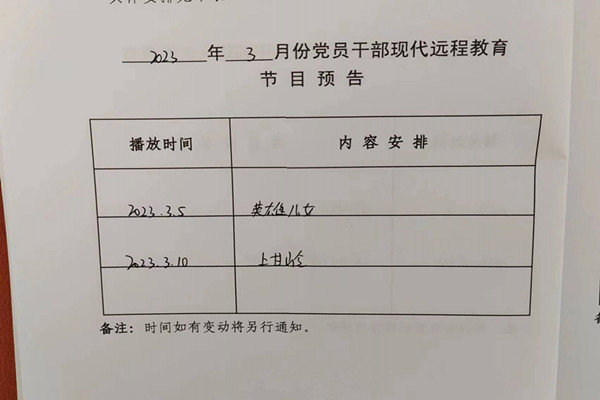 2023年3月份党员干部现代远程教育
节目预告
播放时间 内容安排
2023.3.5 英雄儿女
2023.3.10 上甘岭
备注：时间如有变动将另行通知。